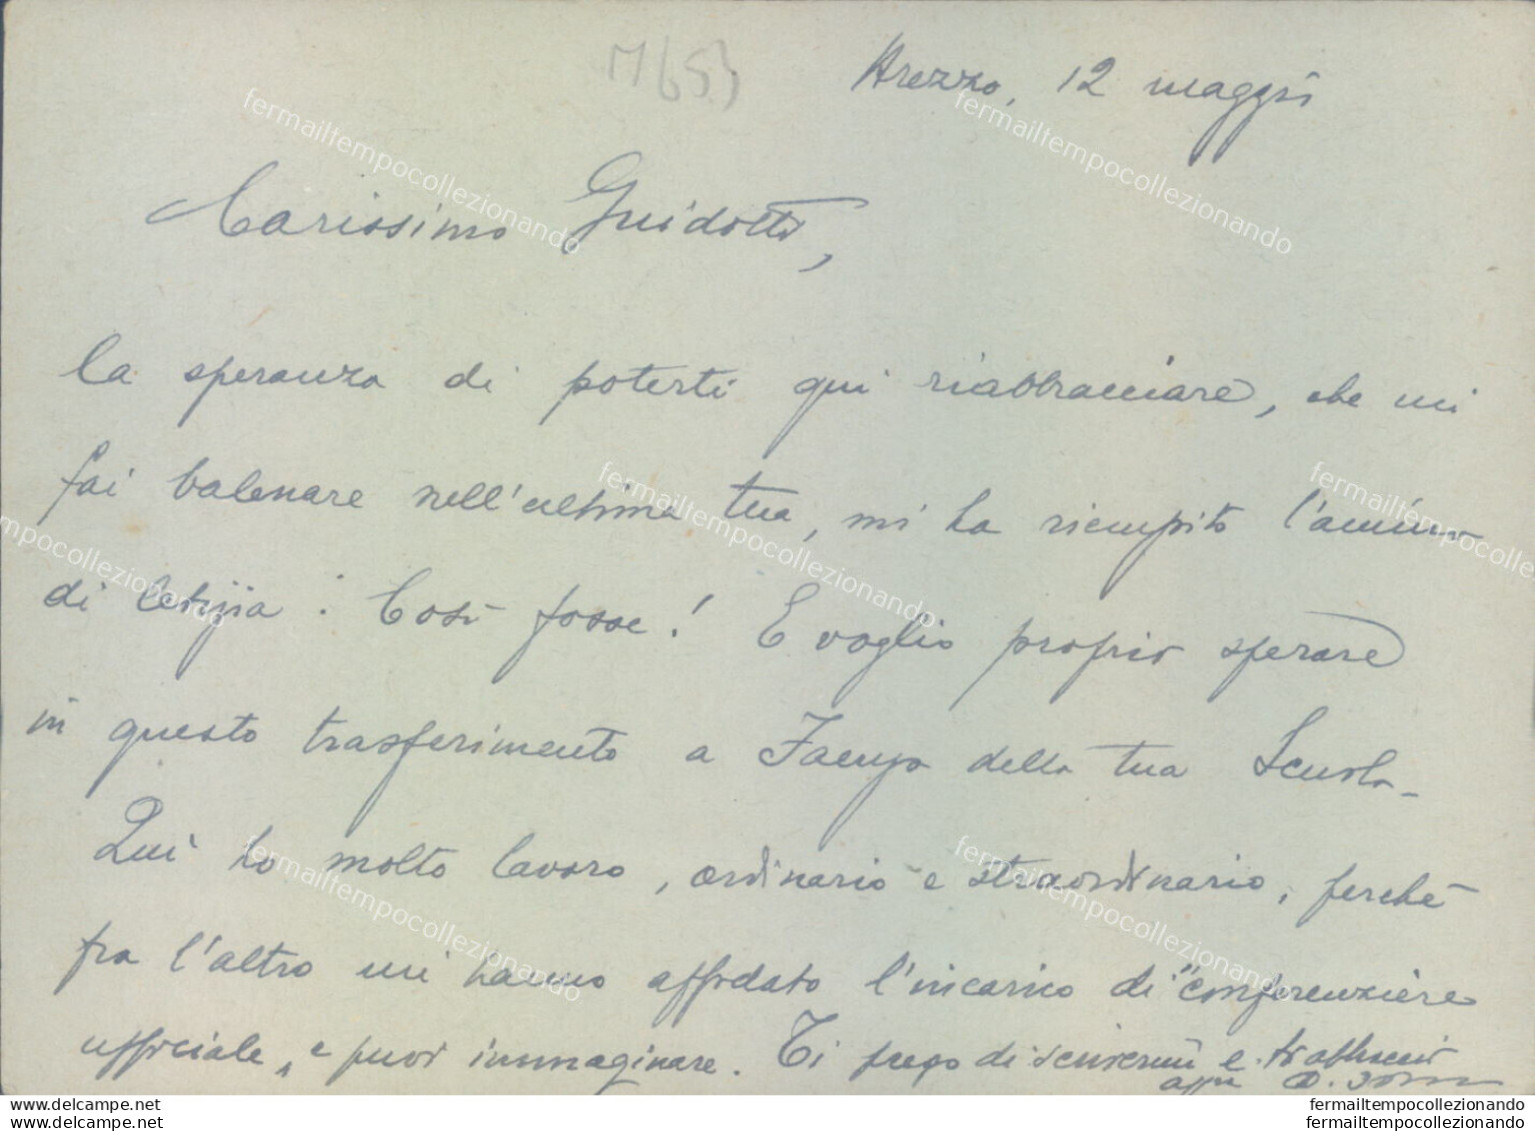 M653
Arezzo, 12 maggio
Carissimo Guidotti,
la speranza di poterti qui riabbracciare, che mi
fai balenare nell'ultima tua, mi ha riempito l'animo
di letizia. Così fosse! E voglio proprio sperare
in questo trasferimento a Faenza della tua Scuola.
Qui ho molto lavoro, ordinario e straordinario, perchè
fra l'altro mi hanno affidato l'incarico di "conferenziere
ufficiale" e puoi immaginare. Ti prego di scrivermi e
fermailtempocollezionando
fermailtempocollezionando
fermailtempocollezionando
fermailtempocollezionando
fermailtempocollezionando
fermailtempocollezionando
fermailtempocollezionando
fermailtempocollezionando
fermailtempocollezionando
fermailtempocollezionando
fermailtempocollezionando